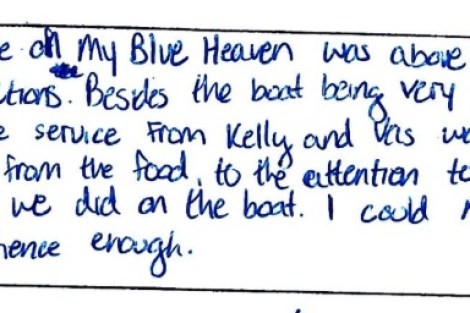 e on My Blue Heaven was above
ctions. Besides the boat being very
e service from Kelly and Vas wa
from the food, to the attention to
we did on the boat. I could n
rience enough.